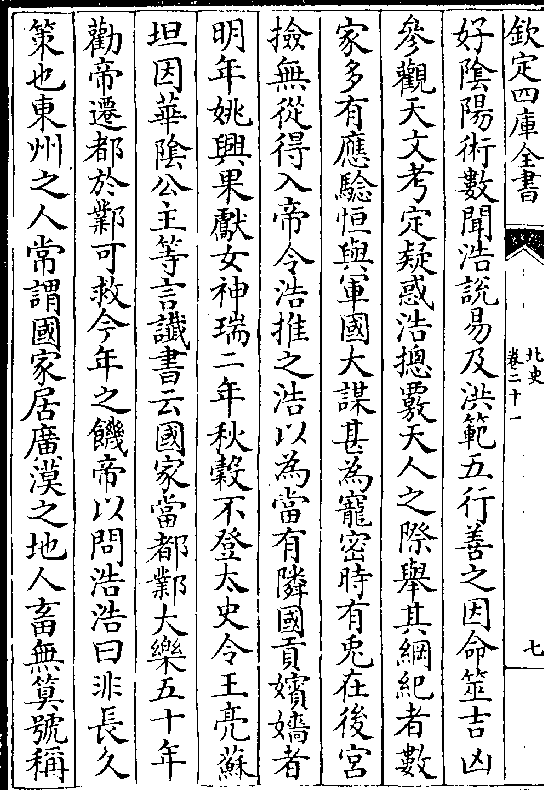 欽定四庫全書
北史
卷二十一
七
好陰陽術數聞浩說易及洪範五行善之因命筮吉凶
參觀天文考定疑惑浩摠覈天人之際舉其綱紀者數
家多有應驗恒與軍國大謀甚為寵密時有兎在後宮
撿無從得入帝令浩推之浩以為當有隣國貢嬪嬙者
明年姚興果獻女神瑞二年秋穀不登太史令王亮蘇
坦因華隂公主等言讖書云國家當都鄴大樂五十年
勸帝遷都於鄴可救今年之饑帝以問浩浩曰非長久
策也東州之人常謂國家居廣漠之地人畜無筭號稱